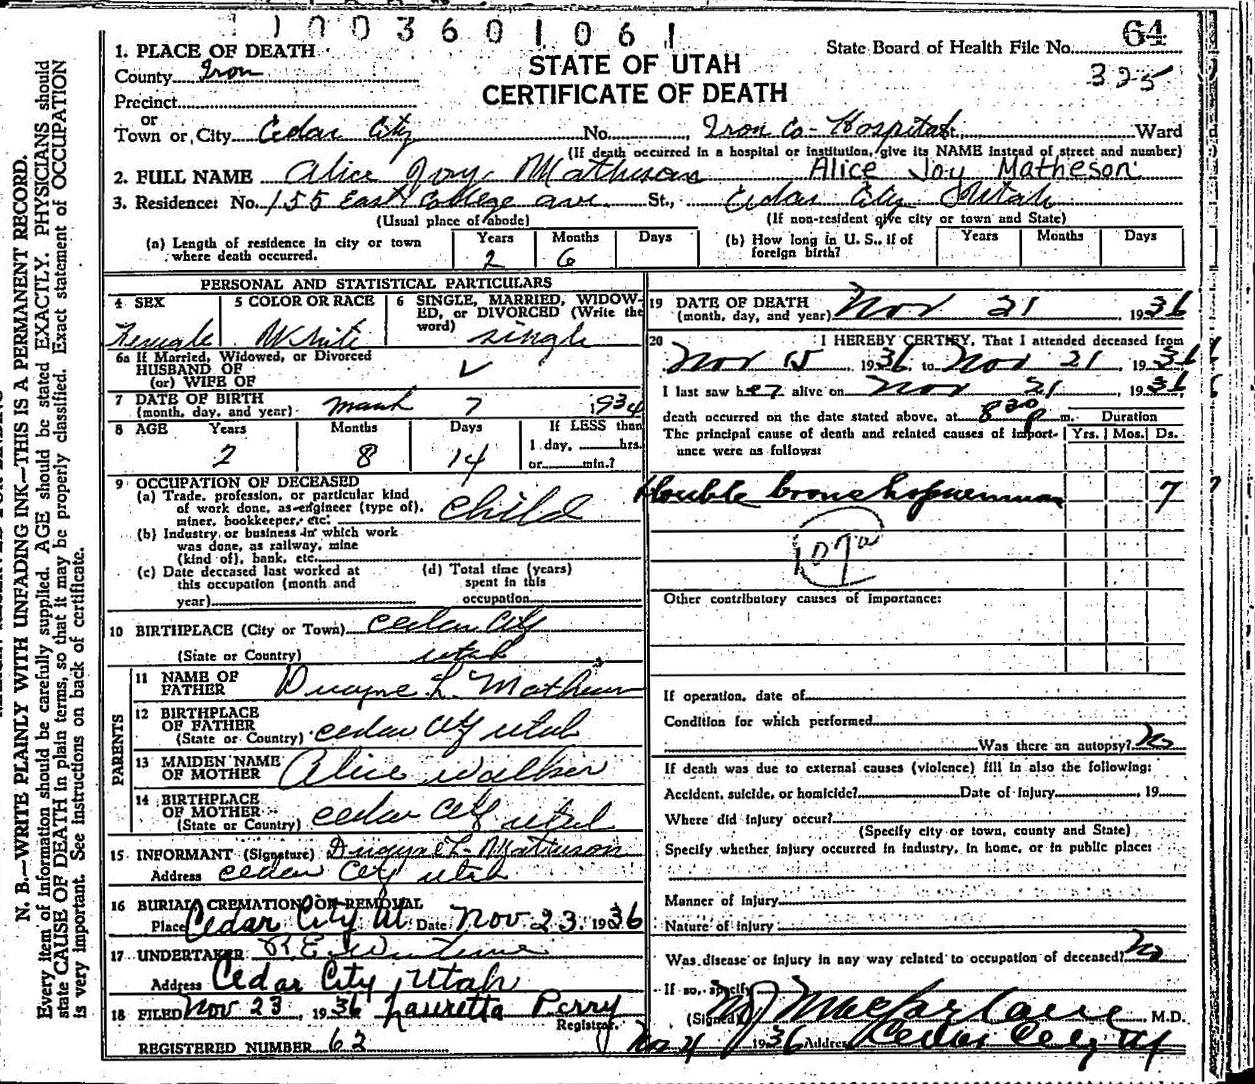 1003601061
64
State Board of Health File No.
325
1. PLACE OF DEATH
STATE OF UTAH
County Iron
CERTIFICATE OF DEATH
Precinct
or
Town or City Cedar City No. Iron Co. Hospital Ward
(If death occurred in a hospital or institution, give its NAME instead of street and number)
2. FULL NAME Alice Joy Matheson Alice Joy Matheson
3. Residence: No. 155 East College ave. St., Cedar City Utah
(Usual place of abode) (If non-resident give city or town and State)
(a) Length of residence in city or town where death occurred. Years 2 Months 6 Days
(b) How long in U. S., if of foreign birth? Years Months Days
PERSONAL AND STATISTICAL PARTICULARS
4 SEX Female
5 COLOR OR RACE White
6 SINGLE, MARRIED, WIDOWED, or DIVORCED (Write the word) single
6a If Married, Widowed, or Divorced
HUSBAND OF
(or) WIFE OF
7 DATE OF BIRTH
(month, day, and year) March 7 1934
8 AGE Years 2 Months 8 Days 14 If LESS than 1 day, hrs. or min.?
9 OCCUPATION OF DECEASED
(a) Trade, profession, or particular kind
of work done, as engineer (type of),
miner, bookkeeper, etc. child
(b) Industry or business in which work
was done, as railway, mine
(kind of), bank, etc.
(c) Date deceased last worked at
this occupation (month and
year)
(d) Total time (years)
spent in this
occupation
10 BIRTHPLACE (City or Town) Cedar City
(State or Country) Utah
PARENTS
11 NAME OF
FATHER Duayne L. Matheson
12 BIRTHPLACE
OF FATHER
(State or Country) Cedar City Utah
13 MAIDEN NAME
OF MOTHER Alice Walker
14 BIRTHPLACE
OF MOTHER
(State or Country) Cedar City Utah
15 INFORMANT (Signature) Duayne L. Matheson
Address Cedar City Utah
16 BURIAL, CREMATION OR REMOVAL
Place Cedar City Ut. Date Nov 23. 1936
17 UNDERTAKER
Address Cedar City, Utah
18 FILED Nov 23, 1936 Lauretta Perry
Registrar.
REGISTERED NUMBER 62
19 DATE OF DEATH
(month, day, and year) Nov 21 1936
20 I HEREBY CERTIFY, That I attended deceased from
Nov 15 1936 to Nov 21, 1936
I last saw her alive on Nov 21, 1936
death occurred on the date stated above, at 8 30 p m. Duration
The principal cause of death and related causes of importance were as follows: Yrs. Mos. Ds.
Double bronchopneumonia 7
107a
Other contributory causes of importance:
If operation, date of
Condition for which performed
Was there an autopsy? No
If death was due to external causes (violence) fill in also the following:
Accident, suicide, or homicide? Date of Injury , 19
Where did injury occur?
(Specify city or town, county and State)
Specify whether injury occurred in industry, in home, or in public place:
Manner of Injury
Nature of injury
Was disease or injury in any way related to occupation of deceased? No
If so, specify
(Signed) Macfarlane M.D.
1936 Address Cedar City Ut
N. B.—WRITE PLAINLY WITH UNFADING INK—THIS IS A PERMANENT RECORD.
Every item of information should be carefully supplied. AGE should be stated EXACTLY. PHYSICIANS should
state CAUSE OF DEATH in plain terms, so that it may be properly classified. Exact statement of OCCUPATION
is very important. See instructions on back of certificate.